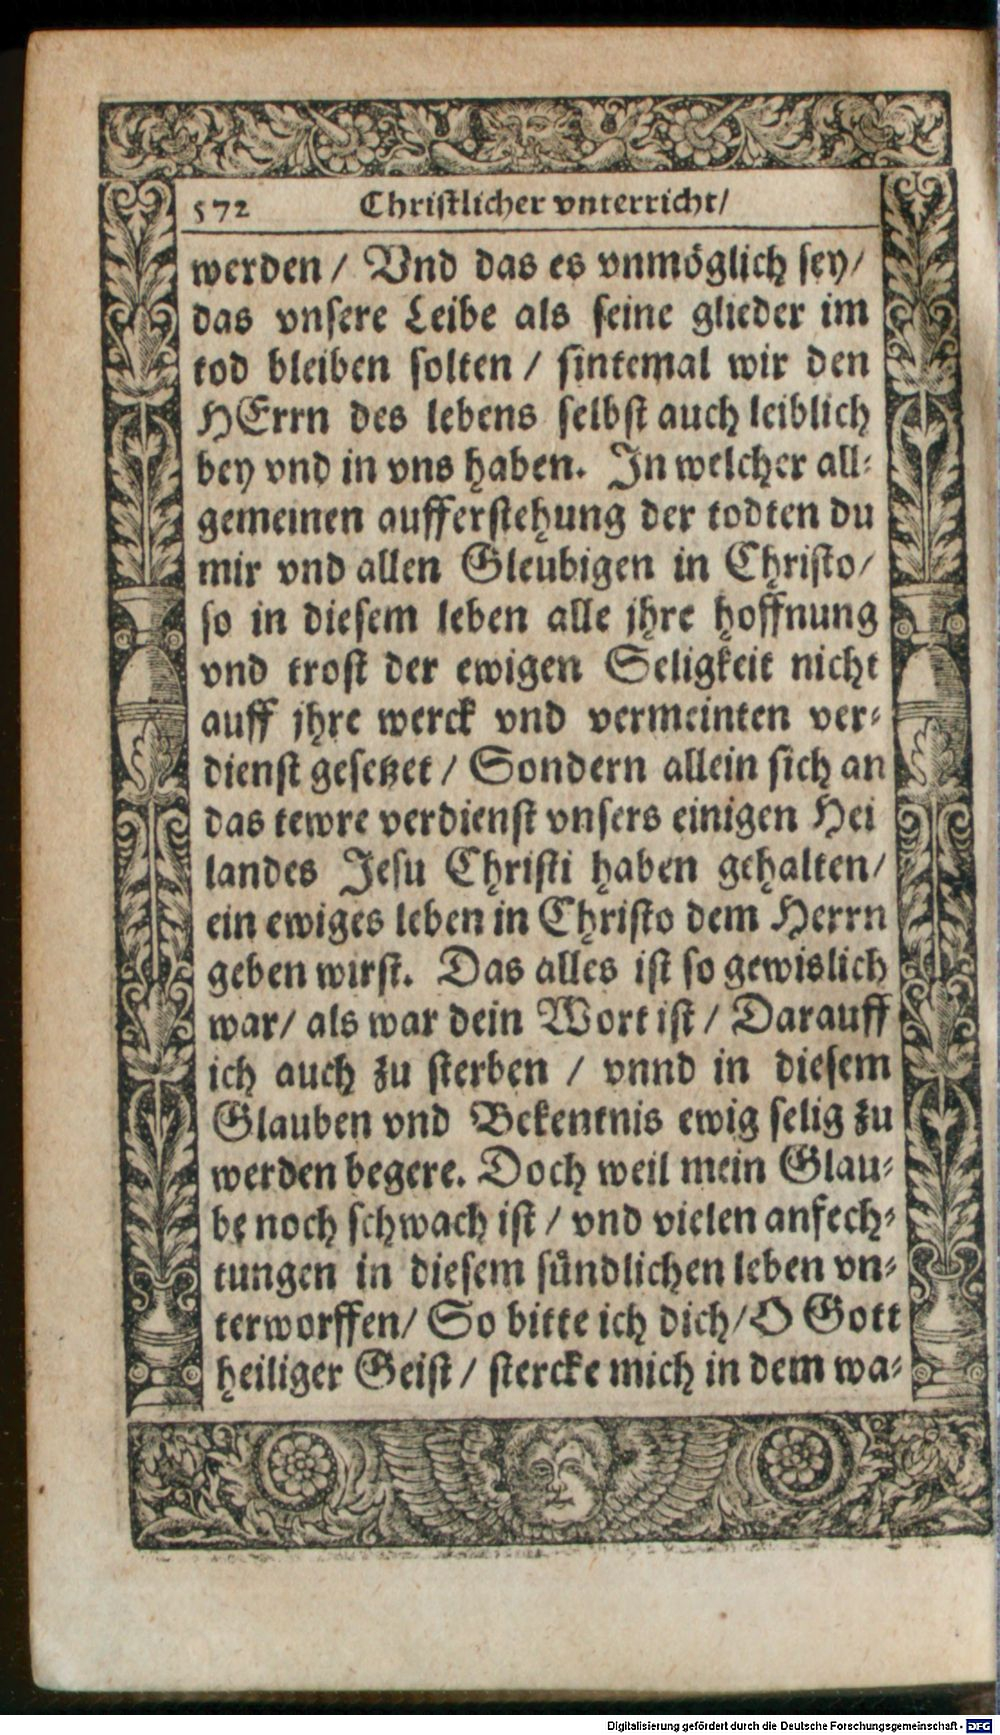 572 Christlicher vnterricht/
werden / Vnd das es vnmöglich sey/
das vnsere Leibe als seine glieder im
tod bleiben solten / sintemal wir den
HErrn des lebens selbst auch leiblich
bey vnd in vns haben. In welcher all⸗
gemeinen aufferstehung der todten du
mir vnd allen Gleubigen in Christo/
so in diesem leben alle jhre hoffnung
vnd trost der ewigen Seligkeit nicht
auff jhre werck vnd vermeinten ver⸗
dienst gesetzet / Sondern allein sich an
das tewre verdienst vnsers einigen Hei
landes Jesu Christi haben gehalten/
ein ewiges leben in Christo dem Herrn
geben wirst. Das alles ist so gewislich
war/ als war dein Wort ist / Darauff
ich auch zu sterben / vnnd in diesem
Glauben vnd Bekentnis ewig selig zu
werden begere. Doch weil mein Glau⸗
be noch schwach ist / vnd vielen anfech⸗
tungen in diesem sündlichen leben vn⸗
terworffen/ So bitte ich dich/ O Gott
heiliger Geist / stercke mich in dem wa⸗
Digitalisierung gefördert durch die Deutsche Forschungsgemeinschaft - DFG